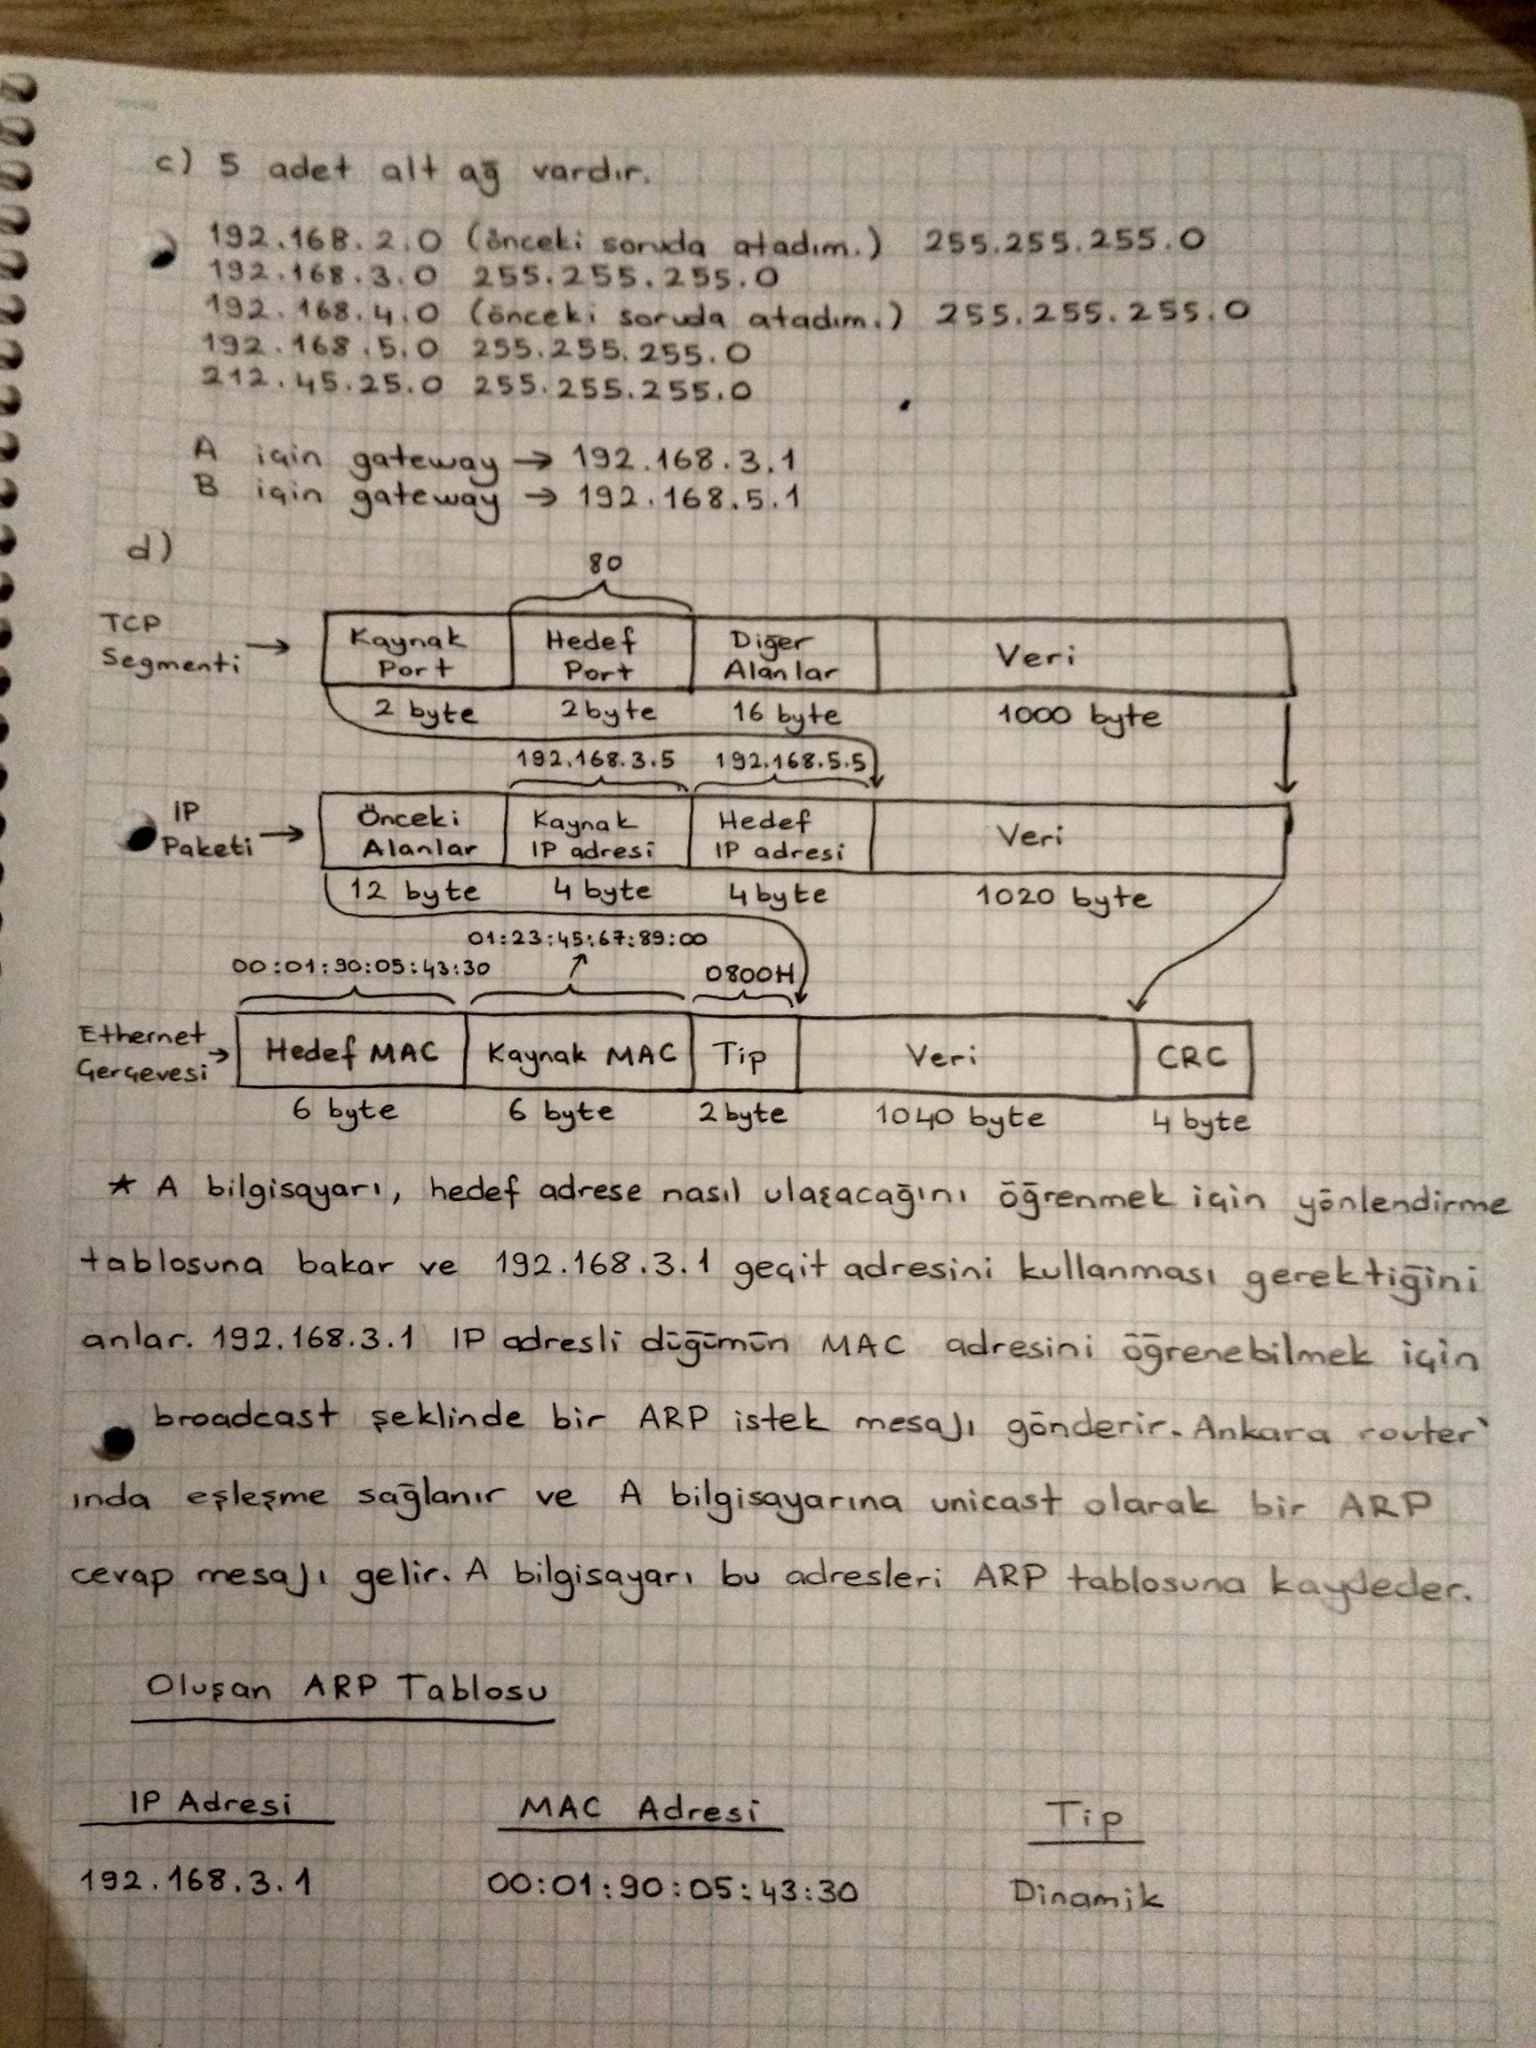 c) 5 adet alt ağ vardır.
192.168.2.0 (önceki soruda atadım.) 255.255.255.0
192.168.3.0 255.255.255.0
192.168.4.0 (önceki soruda atadım.) 255.255.255.0
192.168.5.0 255.255.255.0
212.45.25.0 255.255.255.0
A için gateway → 192.168.3.1
B için gateway → 192.168.5.1
d)
80
TCP Segmenti →
Kaynak Port
Hedef Port
Diğer Alanlar
Veri
2 byte 2 byte 16 byte 1000 byte
192.168.3.5 192.168.5.5
IP Paketi →
Önceki Alanlar
Kaynak IP adresi
Hedef IP adresi
Veri
12 byte 4 byte 4 byte 1020 byte
01:23:45:67:89:00
00:01:90:05:43:30 0800H
Ethernet Çerçevesi →
Hedef MAC Kaynak MAC Tip Veri CRC
6 byte 6 byte 2 byte 1040 byte 4 byte
* A bilgisayarı, hedef adrese nasıl ulaşacağını öğrenmek için yönlendirme
tablosuna bakar ve 192.168.3.1 geçit adresini kullanması gerektiğini
anlar. 192.168.3.1 IP adresli düğümün MAC adresini öğrenebilmek için
broadcast şeklinde bir ARP istek mesajı gönderir. Ankara router'
ında eşleşme sağlanır ve A bilgisayarına unicast olarak bir ARP
cevap mesajı gelir. A bilgisayarı bu adresleri ARP tablosuna kaydeder.
Oluşan ARP Tablosu
IP Adresi MAC Adresi Tip
192.168.3.1 00:01:90:05:43:30 Dinamik